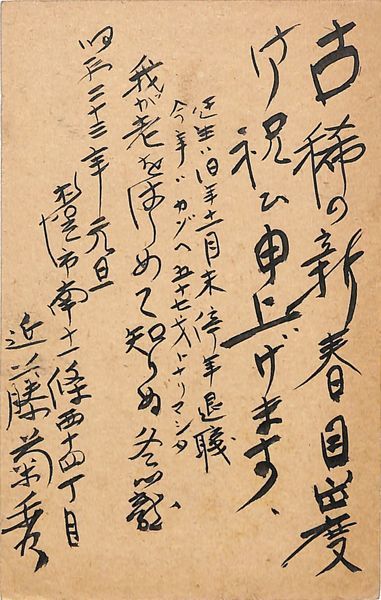 古稀の新春目出度
御祝ひ申上げます、
旧年十一月末停年退職
今年ガカゾヘ五十七才トナリマシタ
我が老をはしめて知りぬ冬籠
昭和三十三年 元旦
札幌市南十一條西十四丁目
近藤菊